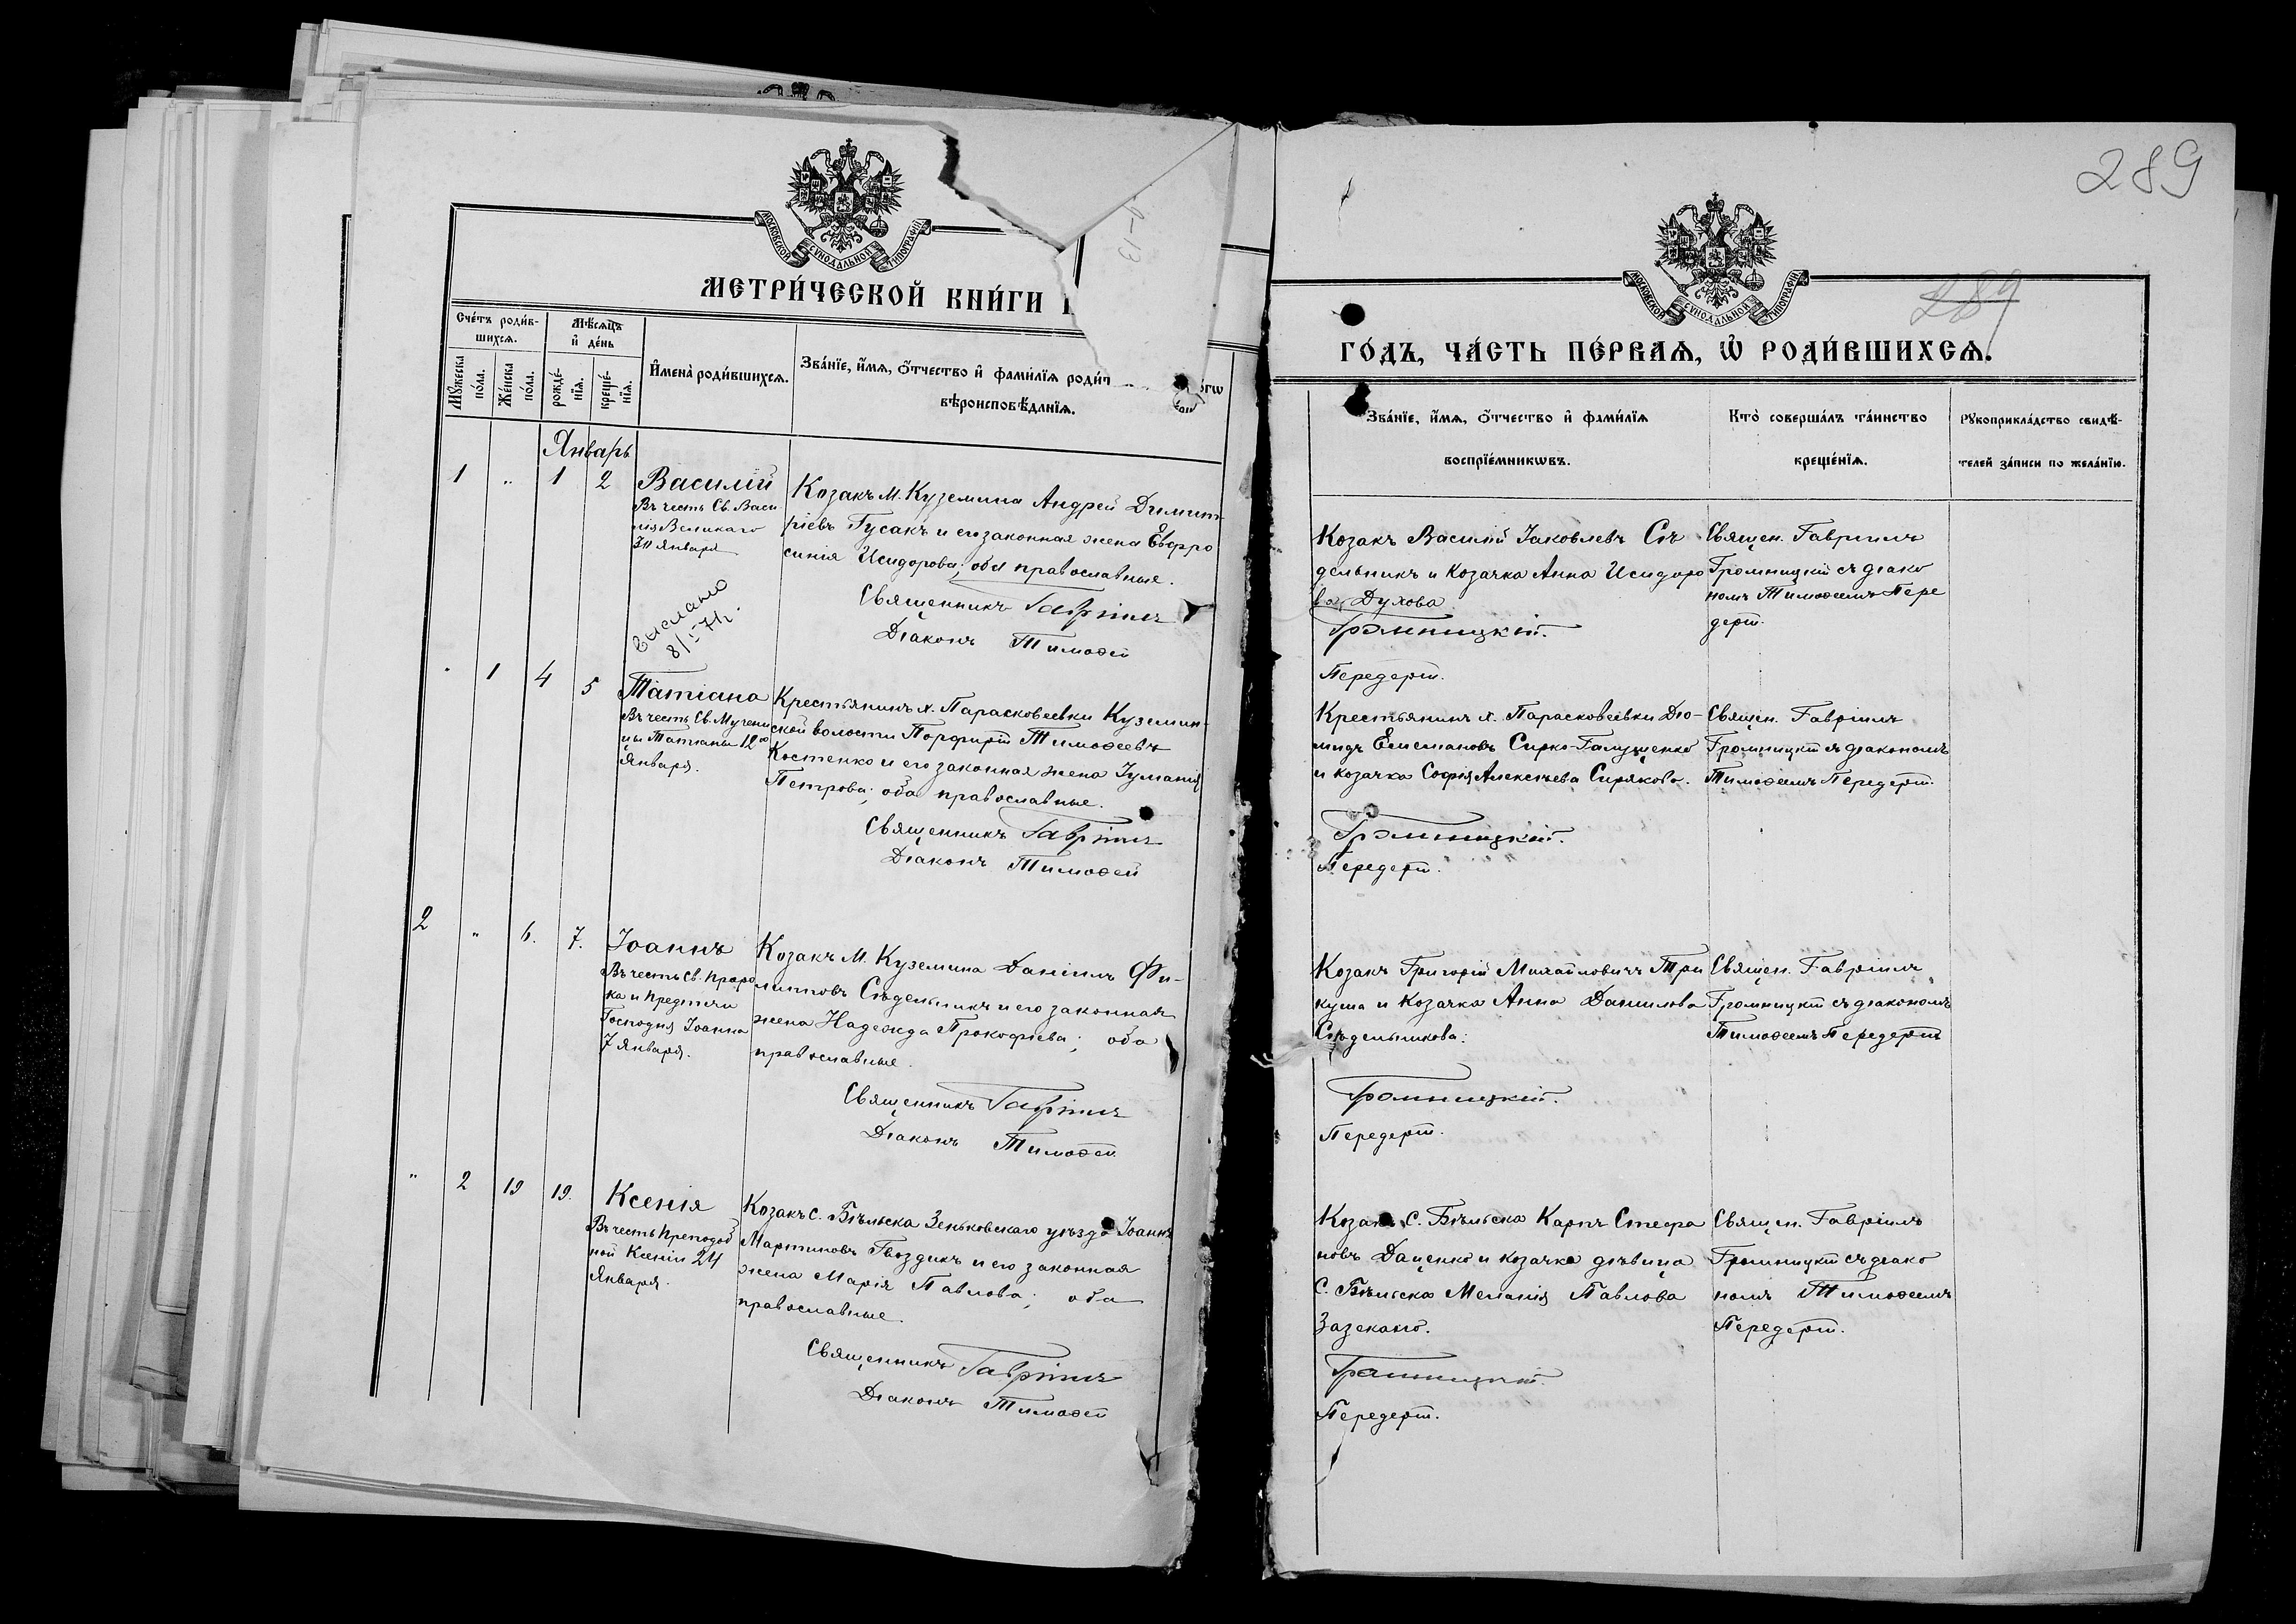 МОСКОВСКОЙ СѴНОДАЛЬНОЙ ТИПОГРАФІИ
МЕТРИ́ЧЕСКОЙ КНИ́ГИ
Сче́тъ роди́в-
шихсѧ.
Мѣ́сѧцъ
и҆ де́нь
И҆мена̀ роди́вшихсѧ.
Зва́нїе, и҆́мѧ, ѻ҆́тчество и҆ фами́лїѧ роди́т
вѣроисповѣ́данїѧ.
Мꙋ́жеска
по́ла.
Же́нска
по́ла.
рожде́-
нїѧ.
креще́-
нїѧ.
Январь
1 „ 1 2
Василій
Въ честь Св. Васи-
лія Великаго
1го Января
Козакъ М. Куземина Андрей Димит-
ріевъ Гусакъ и его законная жена Евфро
синія Исидорова; оба православные.
Священникъ Гавріилъ
Діаконъ Тимоѳей
выслано
„ 1 4 5
Татіана
Въ честь Св. Мучени
цы Татіаны 12го
Января.
Крестьянинъ х. Парасковеевки Куземин-
ской волости Порфирій Тимоѳеевъ
Костенко и его законная жена Іуліанія
Петрова; оба православные.
Священникъ Гавріилъ
Діаконъ Тимоѳей
2 „ 6. 7.
Іоаннъ
Въ честь Св. Проро
ка и Предтечи
Господня Іоанна
7 Января.
Козакъ М. Куземина Даніилъ Фи-
липповъ Сѣдельникъ и его законная
жена Надежда Прокофіева; оба
православные.
Священникъ Гавріилъ
Діаконъ Тимоѳей
„ 2 19 19.
Ксенія
Въ честь Преподоб
ной Ксеніи 24
Января.
Козакъ С. Бѣльска Зеньковскаго уѣзда Іоаннъ
Мартиновъ Гвоздикъ и его законная
жена Марія Павлова; оба
православные.
Священникъ Гавріилъ
Діаконъ Тимоѳей
289
289
МОСКОВСКОЙ СѴНОДАЛЬНОЙ ТИПОГРАФІИ
ГО́ДЪ, ЧА́СТЬ ПЕ́РВАѦ, Ѽ РОДИ́ВШИХСѦ.
Зва́нїе, и҆́мѧ, ѻ҆́тчество и҆ фами́лїѧ
воспрїе́мникѡвъ.
Кто̀ соверша́лъ та́инство
креще́нїѧ.
Рꙋкоприкла́дство свидѣ́-
телей за́писи по жела́нїю.
Козакъ Василій Іаковлевъ Сѣ
дельникъ и Козачка Анна Исидоро
ва Духова
Громницкій.
Передерій.
Священ. Гавріилъ
Громницкій съ діако
номъ Тимоѳеемъ Пере
дерій.
Крестьянинъ х. Парасковеевки Діо-
мидъ Сирко-Галущенко
и козачка Софія Алексѣева Сирякова.
Громницкій.
Передерій.
Священ. Гавріилъ
Громницкій съ діакономъ
Тимоѳеемъ Передерій.
Козакъ Григорій Михайловичъ Три
куша и Козачка Анна Данилова
Сѣдельникова.
Громницкій.
Передерій.
Священ. Гавріилъ
Громницкій съ діакономъ
Тимоѳеемъ Передерій
Козакъ С. Бѣльска Карпъ Стефа
новъ Даценко и козачка дѣвица
С. Бѣльска Меланія Павлова
Громницкій.
Передерій.
Священ. Гавріилъ
Громницкій съ діако
номъ Тимоѳеемъ
Передерій.